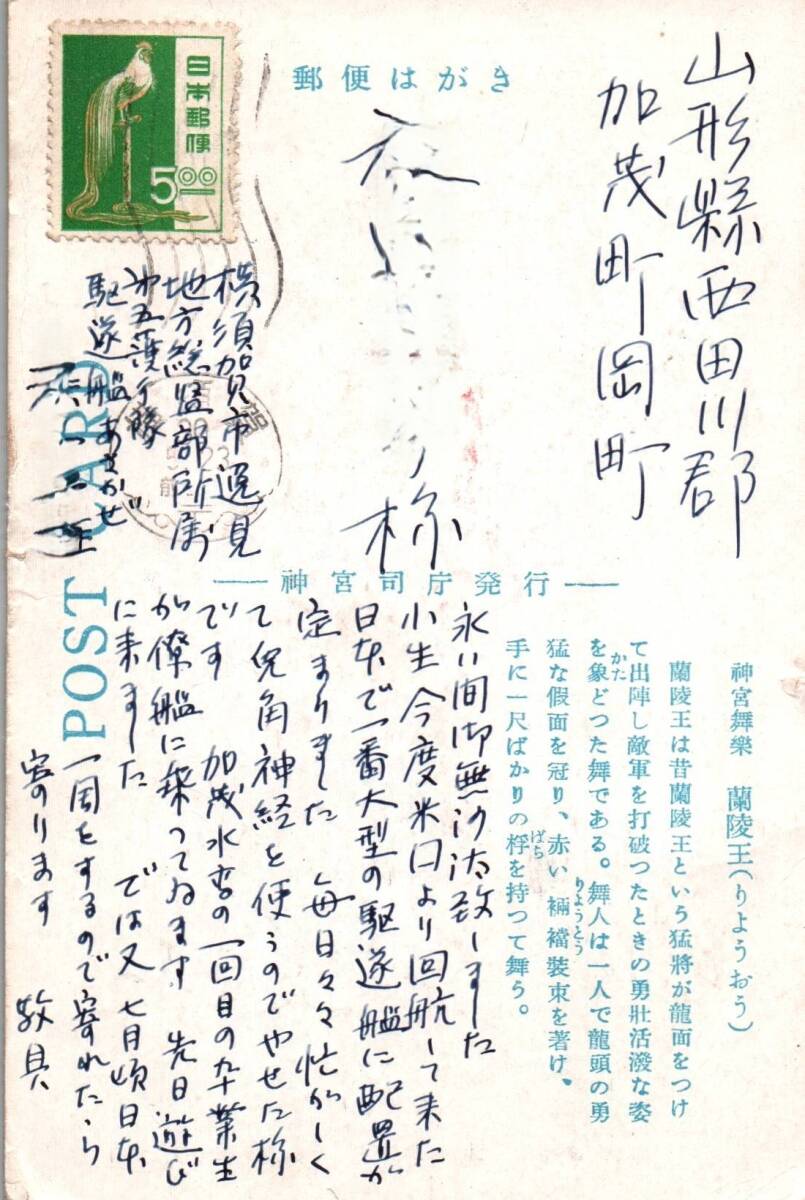 郵便はがき
日本郵便
5.00
山形縣西田川郡
加茂町岡町
様
横須賀市逸見
地方総監部所属
第五護衛隊
駆逐艦あさかぜ
POST CARD
神宮司庁発行
神宮舞樂 蘭陵王(りようおう)
蘭陵王は昔蘭陵王という猛將が龍面をつけ
て出陣し敵軍を打破つたときの勇壯活潑な姿
を象どつた舞である。舞人は一人で龍頭の勇
かた
りようとう
猛な假面を冠り、赤い裲襠裝束を著け、
手に一尺ばかりの桴を持つて舞う。
ばち
永い間御無沙汰致しました
小生 今度米口より回航して来た
日本で一番大型の駆逐艦に配置が
定まりました 毎日々々忙がしく
て兎角神経を使うのでやせた様
です 加茂水高の一回目の卒業生
が僚艦に乗つてゐます 先日遊び
に来ました では又 七月頃日本
一周をするので寄れたら
寄ります 敬具